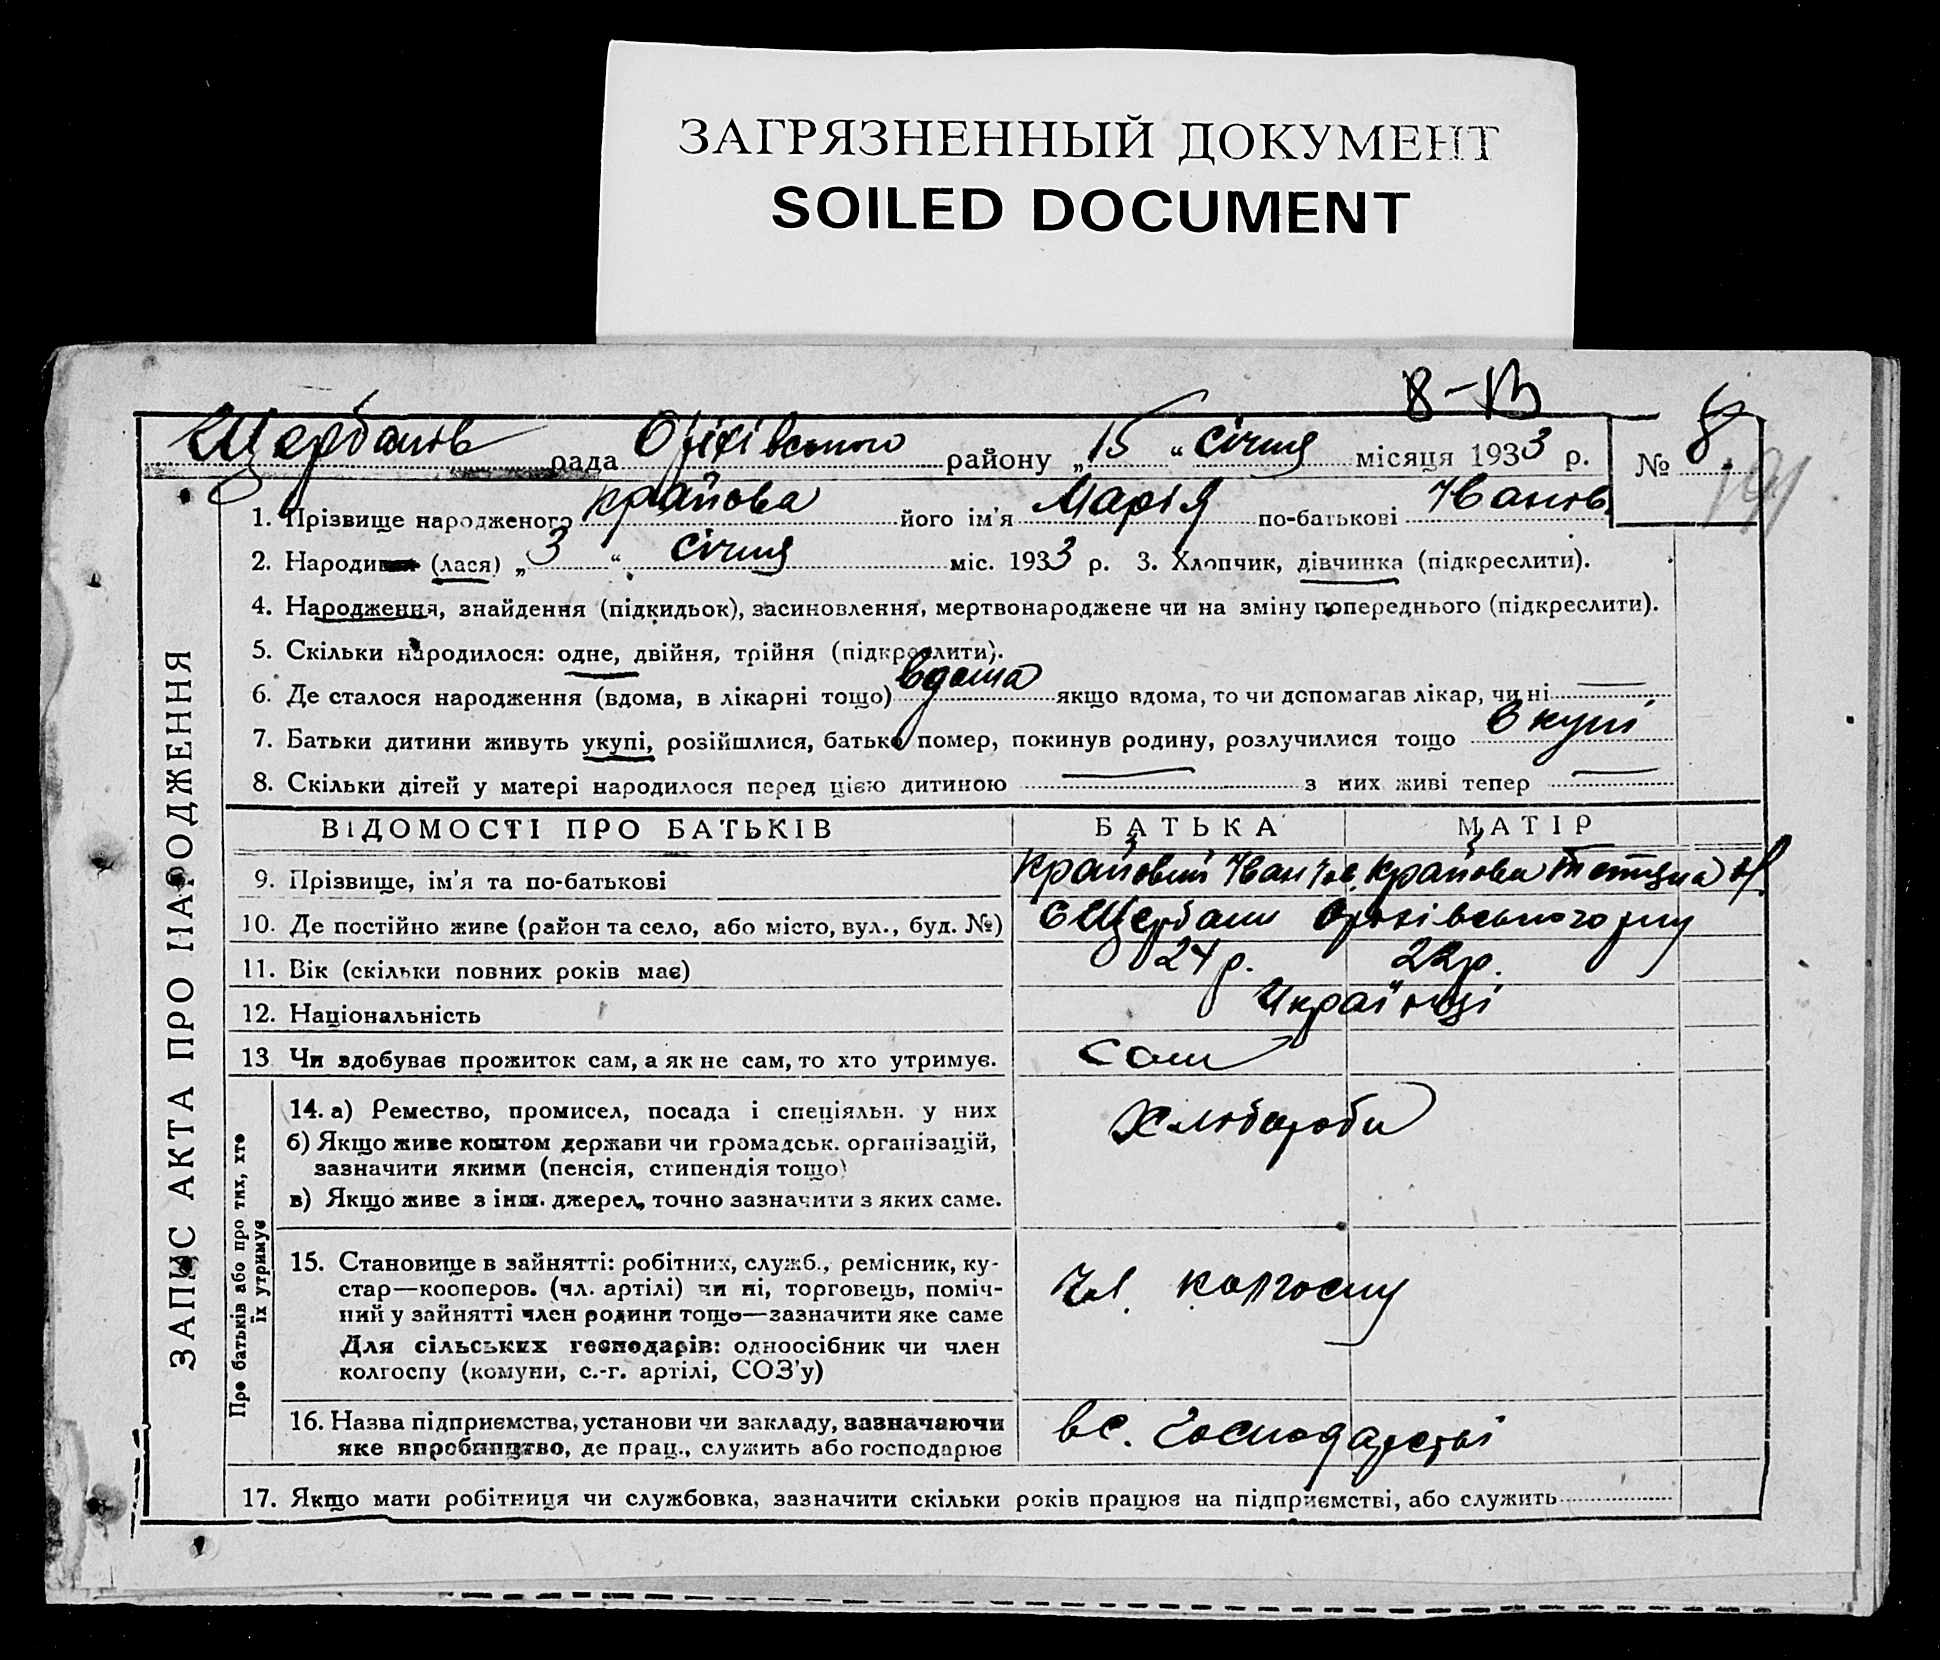 ЗАГРЯЗНЕННЫЙ ДОКУМЕНТ
SOILED DOCUMENT
8-
рада Оріхівського району „15“ січня місяця 1933 р. № 8
1. Прізвище народженого Крайова його ім'я Марія по-батькові Іванів.
2. Народи (лася) „3“ січня міс. 1933 р. 3. Хлопчик, дівчинка (підкреслити).
4. Народження, знайдення (підкидьок), засиновлення, мертвонароджене чи на зміну попереднього (підкреслити).
5. Скільки народилося: одне, двійня, трійня (підкреслити).
6. Де сталося народження (вдома, в лікарні тощо) вдома якщо вдома, то чи допомагав лікар, чи ні
7. Батьки дитини живуть укупі, розійшлися, батько помер, покинув родину, розлучилися тощо вкупі
8. Скільки дітей у матері народилося перед цією дитиною з них живі тепер
ВІДОМОСТІ ПРО БАТЬКІВ БАТЬКА МАТІР
9. Прізвище, ім'я та по-батькові Крайовий Іван Крайова Тетяна
10. Де постійно живе (район та село, або місто, вул., буд. №) Оріхівського р-ну
11. Вік (скільки повних років має) 24 р. 22 р.
12. Національність Українці
13 Чи здобуває прожиток сам, а як не сам, то хто утримує. Сам
14. а) Ремество, промисел, посада і спеціяльн. у них Хлібороби
б) Якщо живе коштом держави чи громадськ. організацій,
зазначити якими (пенсія, стипендія тощо)
в) Якщо живе з інш. джерел, точно зазначити з яких саме.
15. Становище в зайнятті: робітник, служб., ремісник, ку-
стар—кооперов. (чл. артілі) чи ні, торговець, поміч-
ний у зайнятті член родини тощо—зазначити яке саме
Для сільських господарів: одноосібник чи член
колгоспу (комуни, с.-г. артілі, СОЗ'у)
Чл. колгоспу
16. Назва підприємства, установи чи закладу, зазначаючи
яке виробництво, де прац., служить або господарює
в с. господарстві
17. Якщо мати робітниця чи службовка, зазначити скільки років працює на підприємстві, або служить
ЗАПИС АКТА ПРО НАРОДЖЕННЯ
Про батьків або про тих, хто
їх утримує